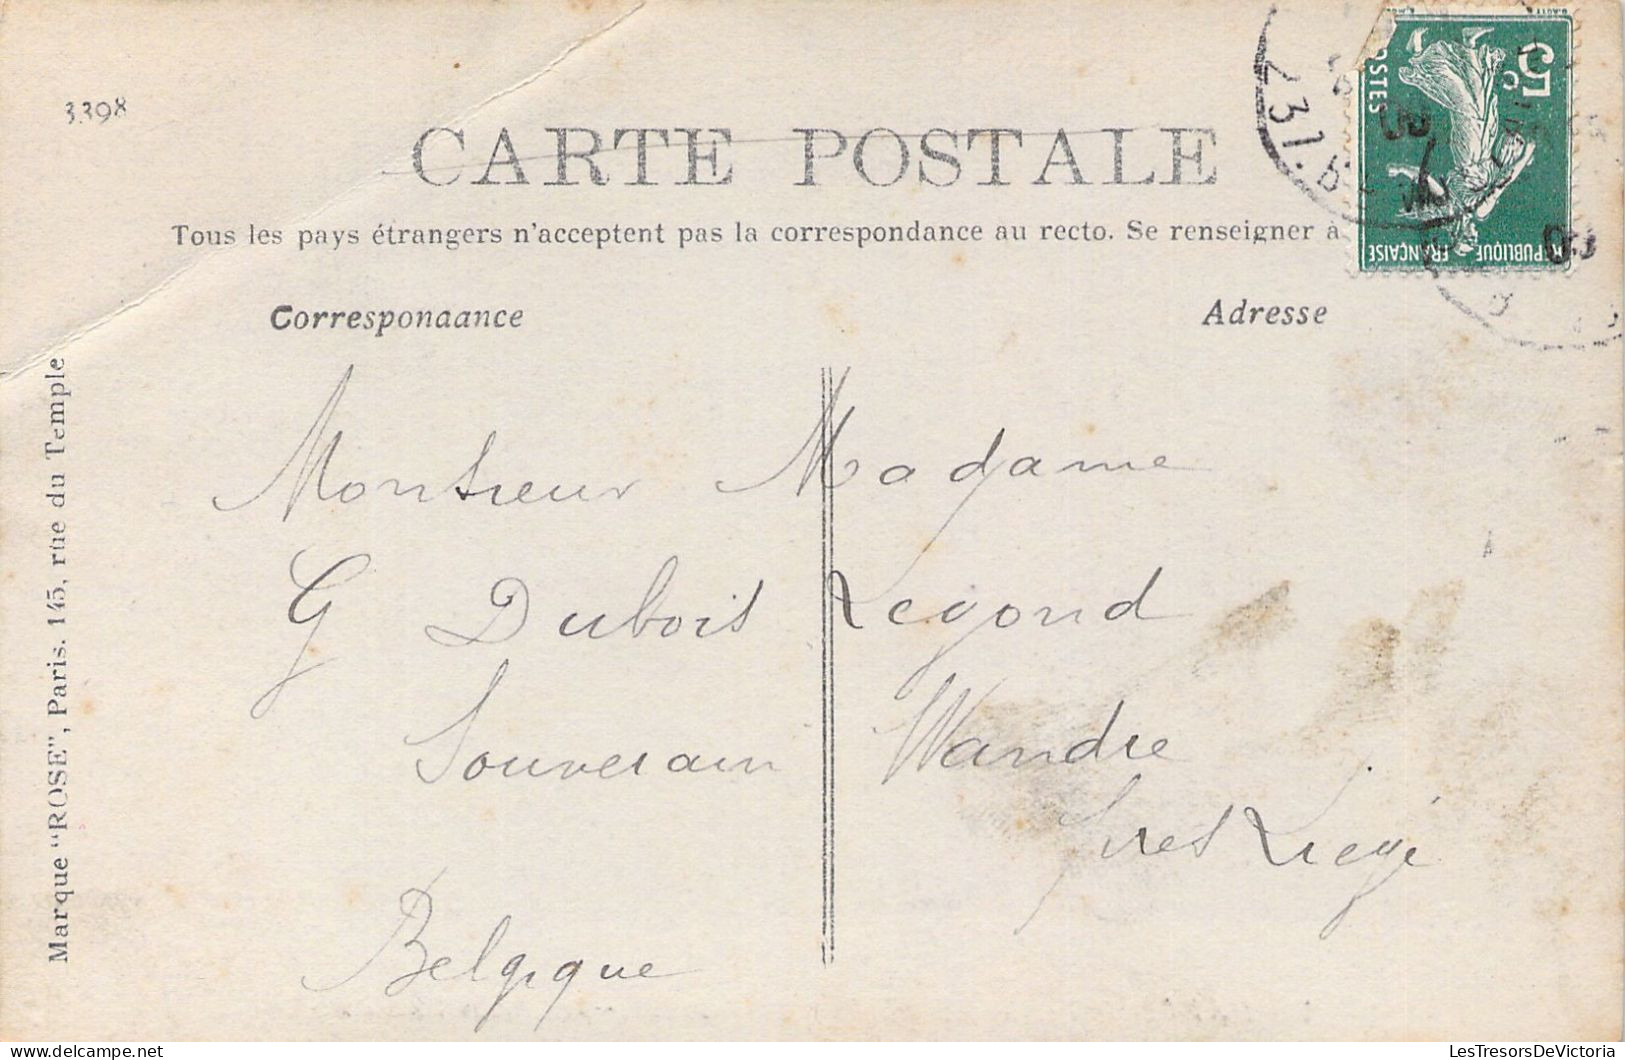 3398
CARTE POSTALE
Tous les pays étrangers n'acceptent pas la correspondance au recto. Se renseigner à
5c
POSTES
RÉPUBLIQUE FRANÇAISE
Correspondance
Adresse
Monsieur Madame
G Dubois Legond
Souverain Wandre
pres Liege
Belgique
Marque "ROSE", Paris. 145, rue du Temple
LesTresorsDeVictoria